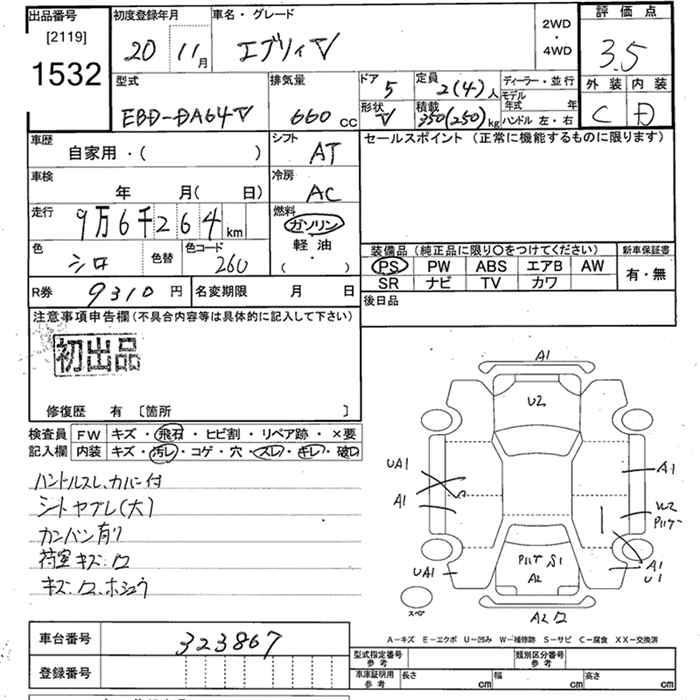 出品番号
[2119]
1532
初度登録年月
20 11月
車名・グレード
エブリィV
2WD
・
4WD
評価点
3.5
外装 内装
C D
型式
EBD-DA64V
排気量
660 cc
ドア 5
形状 V
定員 2(4)人
積載 350(250)kg
ディーラー・並行
モデル年式 年
ハンドル 左・右
車歴
自家用・( )
シフト AT
セールスポイント(正常に機能するものに限ります)
車検
年 月( 日)
冷房 AC
走行
9万6千264km
燃料
ガソリン
軽油
( ・ )
色 シロ
色替
色コード 260
装備品(純正品に限り○をつけてください)
新車保証書
PS PW ABS エアB AW
SR ナビ TV カワ
有・無
R券 9310円
名変期限 月 日
後日品
注意事項申告欄(不具合内容等は具体的に記入して下さい)
初出品
修復歴 有 〔箇所 〕
検査員記入欄
FW キズ・飛石・ヒビ割・リペア跡・×要
内装 キズ・汚レ・コゲ・穴・スレ・キレ・破レ
ハンドルスレ、カバー付
シートヤブレ(大)
カンバン有り
荷室キズ・ワ
キズ・ワ、ホシュウ
A1
U2
UA1
A1
A1
W2
Pハゲ
UA1
Pハゲ S1
A2
A1
U1
スペア
A2ワ
A-キズ E-エクボ U-凹み W-補修跡 S-サビ C-腐食 XX-交換済
車台番号 323867
登録番号
型式指定番号 参考
類別区分番号 参考
車庫証明用 参考
長さ cm 幅 cm 高さ cm